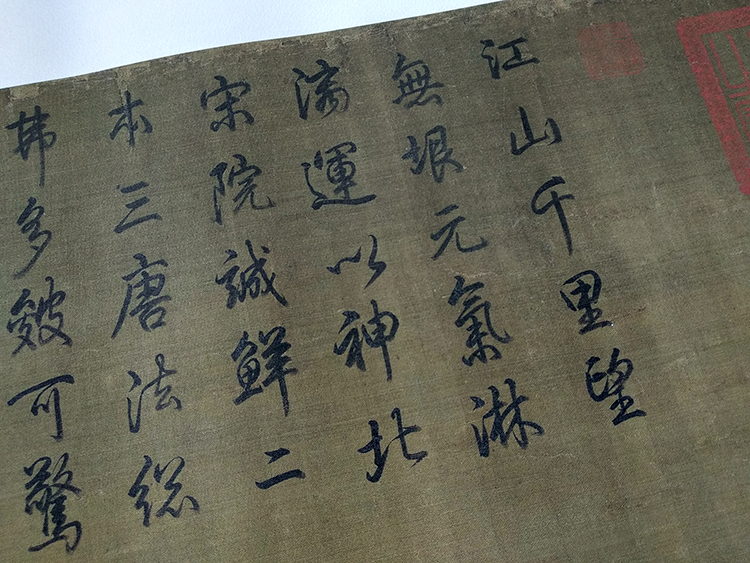 江山千里望
無垠元氣淋
漓運以神北
宋院誠鮮二
本三唐法總
弗多皴可驚